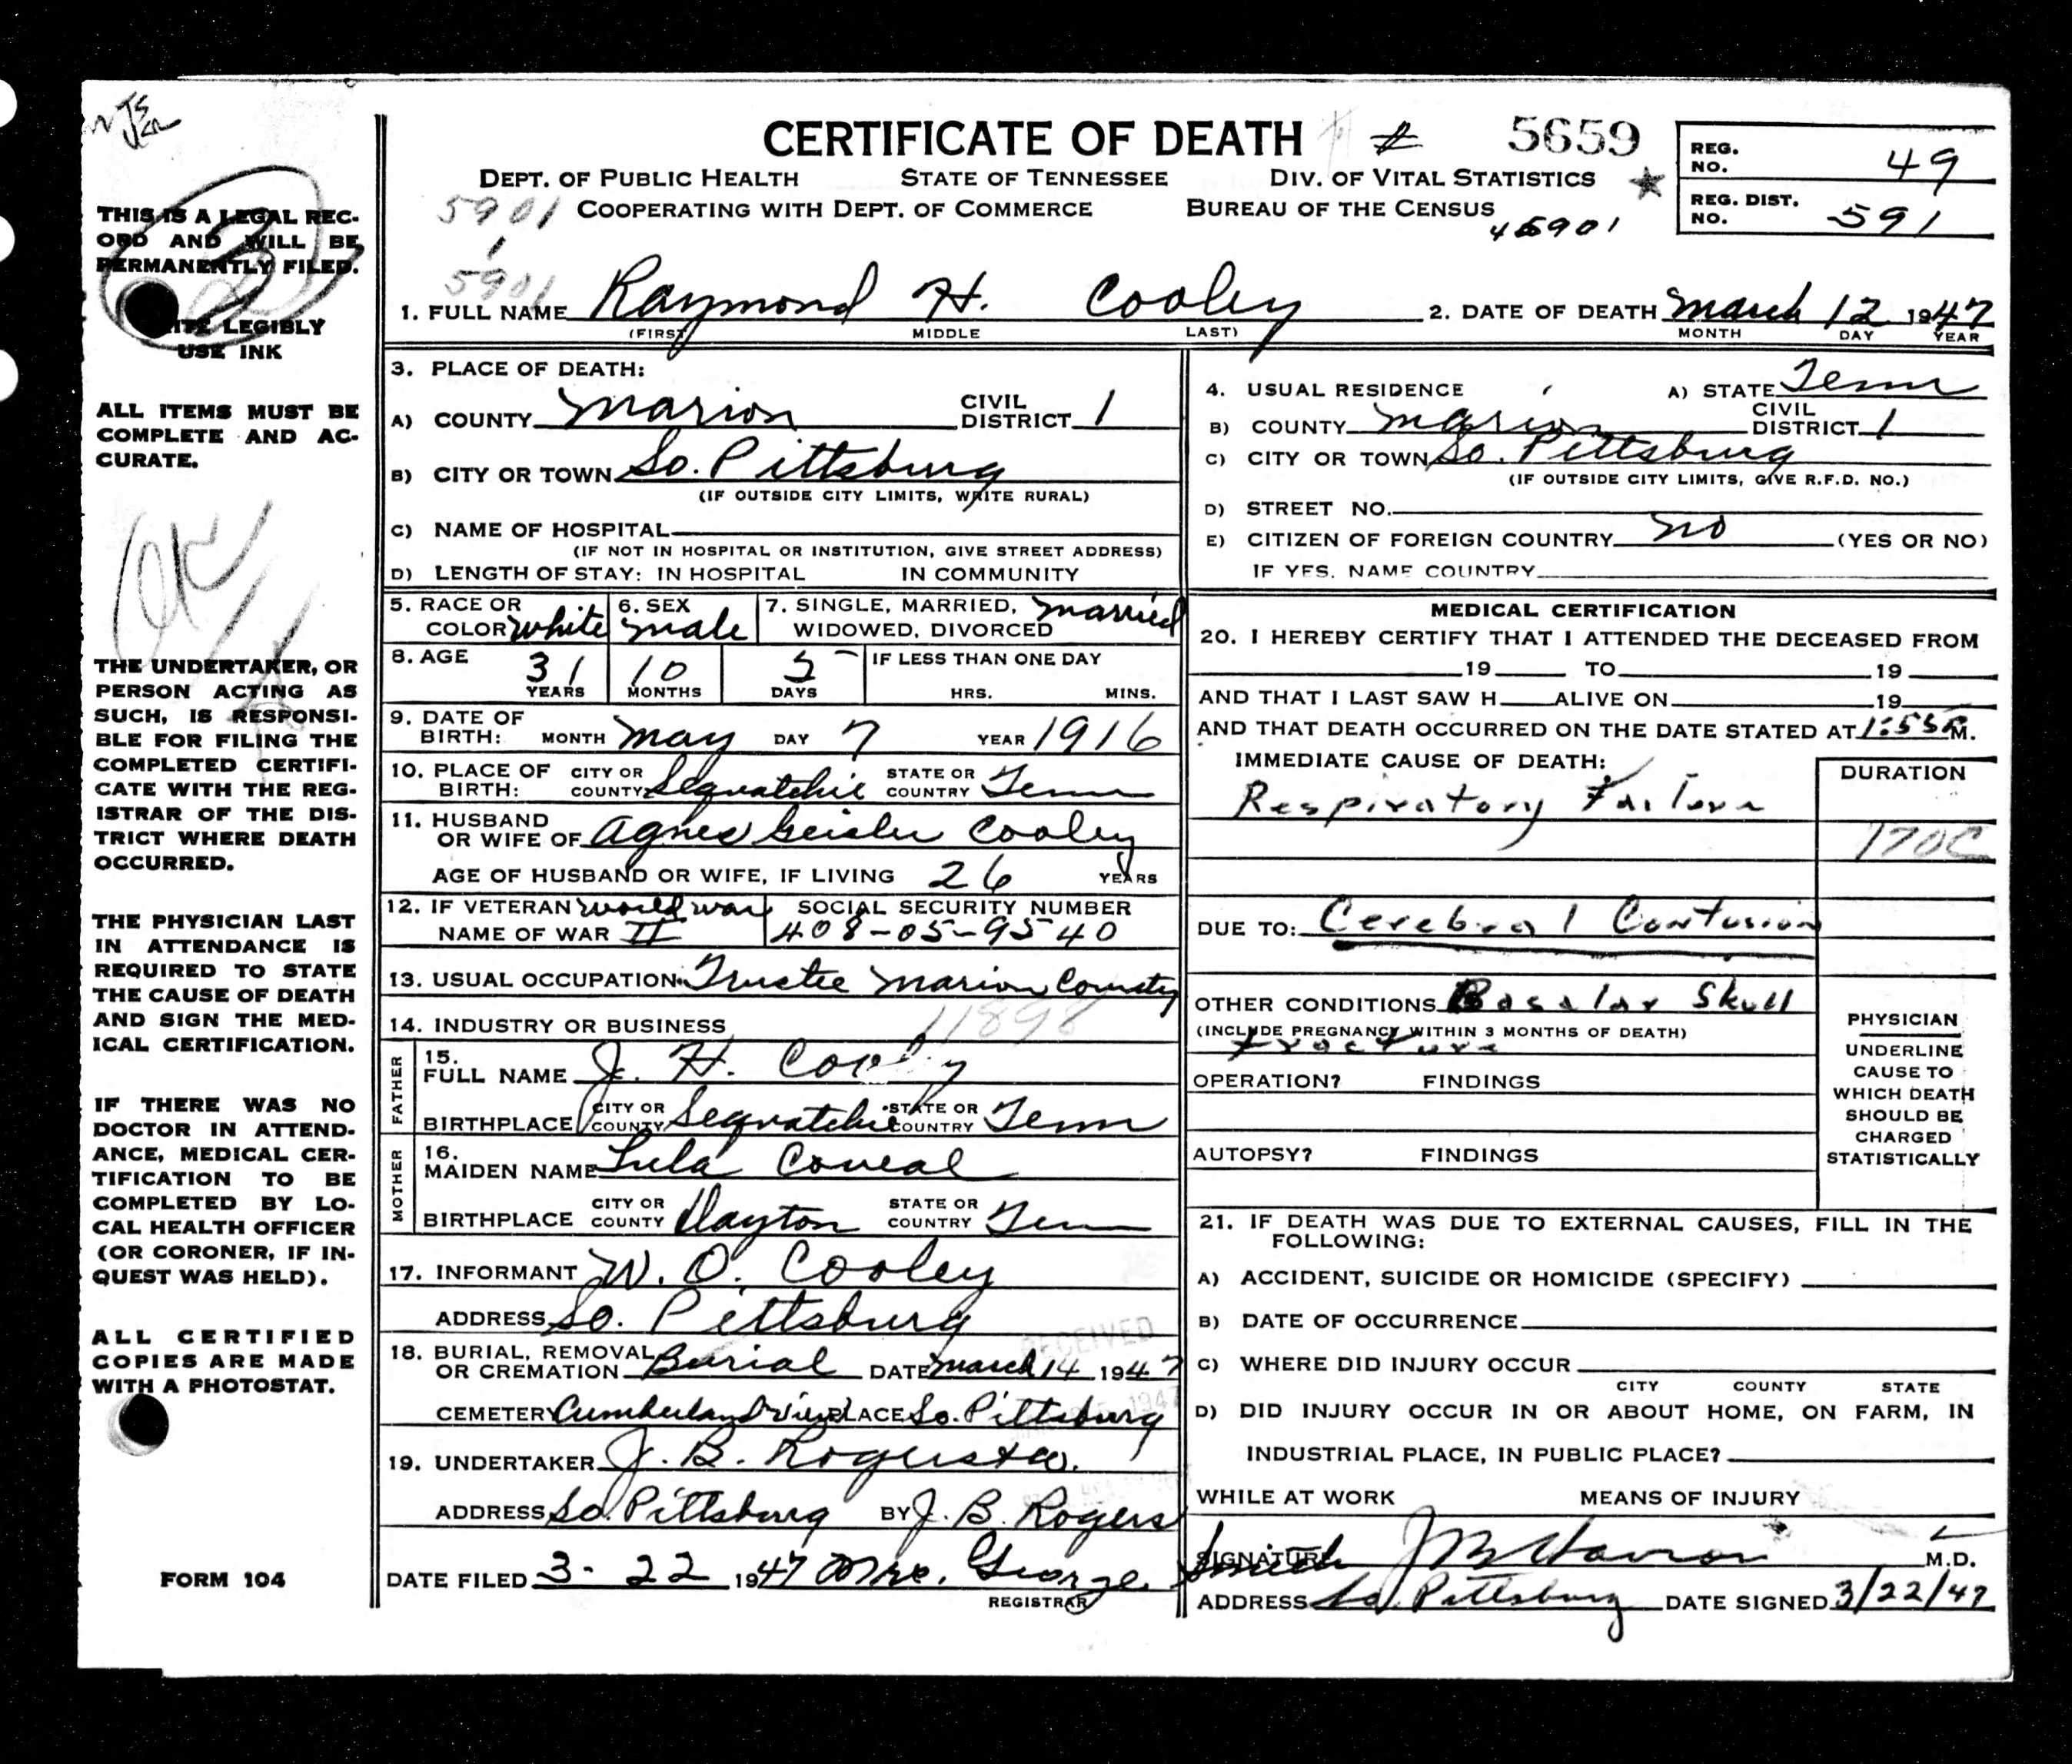 CERTIFICATE OF DEATH
5659
DEPT. OF PUBLIC HEALTH STATE OF TENNESSEE DIV. OF VITAL STATISTICS
COOPERATING WITH DEPT. OF COMMERCE BUREAU OF THE CENSUS
5901
1
5901
45901
REG. NO. 49
REG. DIST. NO. 591
THIS IS A LEGAL REC-
ORD AND WILL BE
PERMANENTLY FILED.
LEGIBLY
USE INK
ALL ITEMS MUST BE
COMPLETE AND AC-
CURATE.
OK
THE UNDERTAKER, OR
PERSON ACTING AS
SUCH, IS RESPONSI-
BLE FOR FILING THE
COMPLETED CERTIFI-
CATE WITH THE REG-
ISTRAR OF THE DIS-
TRICT WHERE DEATH
OCCURRED.
THE PHYSICIAN LAST
IN ATTENDANCE IS
REQUIRED TO STATE
THE CAUSE OF DEATH
AND SIGN THE MED-
ICAL CERTIFICATION.
IF THERE WAS NO
DOCTOR IN ATTEND-
ANCE, MEDICAL CER-
TIFICATION TO BE
COMPLETED BY LO-
CAL HEALTH OFFICER
(OR CORONER, IF IN-
QUEST WAS HELD).
ALL CERTIFIED
COPIES ARE MADE
WITH A PHOTOSTAT.
FORM 104
1. FULL NAME Raymond H. Cooley 2. DATE OF DEATH March 12 1947
(FIRST) MIDDLE LAST) MONTH DAY YEAR
3. PLACE OF DEATH:
A) COUNTY Marion CIVIL DISTRICT 1
B) CITY OR TOWN So. Pittsburg
(IF OUTSIDE CITY LIMITS, WRITE RURAL)
C) NAME OF HOSPITAL
(IF NOT IN HOSPITAL OR INSTITUTION, GIVE STREET ADDRESS)
D) LENGTH OF STAY: IN HOSPITAL IN COMMUNITY
4. USUAL RESIDENCE A) STATE Tenn
B) COUNTY Marion CIVIL DISTRICT 1
C) CITY OR TOWN So. Pittsburg
(IF OUTSIDE CITY LIMITS, GIVE R.F.D. NO.)
D) STREET NO.
E) CITIZEN OF FOREIGN COUNTRY no (YES OR NO)
IF YES, NAME COUNTRY
5. RACE OR COLOR white 6. SEX male 7. SINGLE, MARRIED, WIDOWED, DIVORCED married
8. AGE 31 YEARS 10 MONTHS 5 DAYS IF LESS THAN ONE DAY HRS. MINS.
9. DATE OF BIRTH: MONTH May DAY 7 YEAR 1916
10. PLACE OF BIRTH: CITY OR COUNTY Sequatchie STATE OR COUNTRY Tenn
11. HUSBAND OR WIFE OF Agnes Geisler Cooley
AGE OF HUSBAND OR WIFE, IF LIVING 26 YEARS
12. IF VETERAN NAME OF WAR World War II SOCIAL SECURITY NUMBER 408-05-9540
13. USUAL OCCUPATION Trustee Marion County
14. INDUSTRY OR BUSINESS 11898
FATHER
15. FULL NAME J. H. Cooley
BIRTHPLACE CITY OR COUNTY Sequatchie STATE OR COUNTRY Tenn
MOTHER
16. MAIDEN NAME Lula
BIRTHPLACE CITY OR COUNTY Dayton STATE OR COUNTRY Tenn
17. INFORMANT W. O. Cooley
ADDRESS So. Pittsburg
RECEIVED
18. BURIAL, REMOVAL OR CREMATION Burial DATE March 14 1947
CEMETERY Cumberland View PLACE So. Pittsburg
19. UNDERTAKER J. B. Rogers & Co.
ADDRESS So. Pittsburg BY J. B. Rogers
DATE FILED 3-22 1947 Mrs. George Smith
REGISTRAR
MEDICAL CERTIFICATION
20. I HEREBY CERTIFY THAT I ATTENDED THE DECEASED FROM
19 TO 19
AND THAT I LAST SAW H ALIVE ON 19
AND THAT DEATH OCCURRED ON THE DATE STATED AT 1:55 P M.
IMMEDIATE CAUSE OF DEATH: DURATION
Respiratory Failure
170C
DUE TO: Cerebral Contusion
OTHER CONDITIONS Basalar Skull
(INCLUDE PREGNANCY WITHIN 3 MONTHS OF DEATH)
fracture
OPERATION? FINDINGS
AUTOPSY? FINDINGS
PHYSICIAN
UNDERLINE
CAUSE TO
WHICH DEATH
SHOULD BE
CHARGED
STATISTICALLY
21. IF DEATH WAS DUE TO EXTERNAL CAUSES, FILL IN THE
FOLLOWING:
A) ACCIDENT, SUICIDE OR HOMICIDE (SPECIFY)
B) DATE OF OCCURRENCE
C) WHERE DID INJURY OCCUR
CITY COUNTY STATE
D) DID INJURY OCCUR IN OR ABOUT HOME, ON FARM, IN
INDUSTRIAL PLACE, IN PUBLIC PLACE?
WHILE AT WORK MEANS OF INJURY
SIGNATURE J B Havron M.D.
ADDRESS So. Pittsburg DATE SIGNED 3/22/47